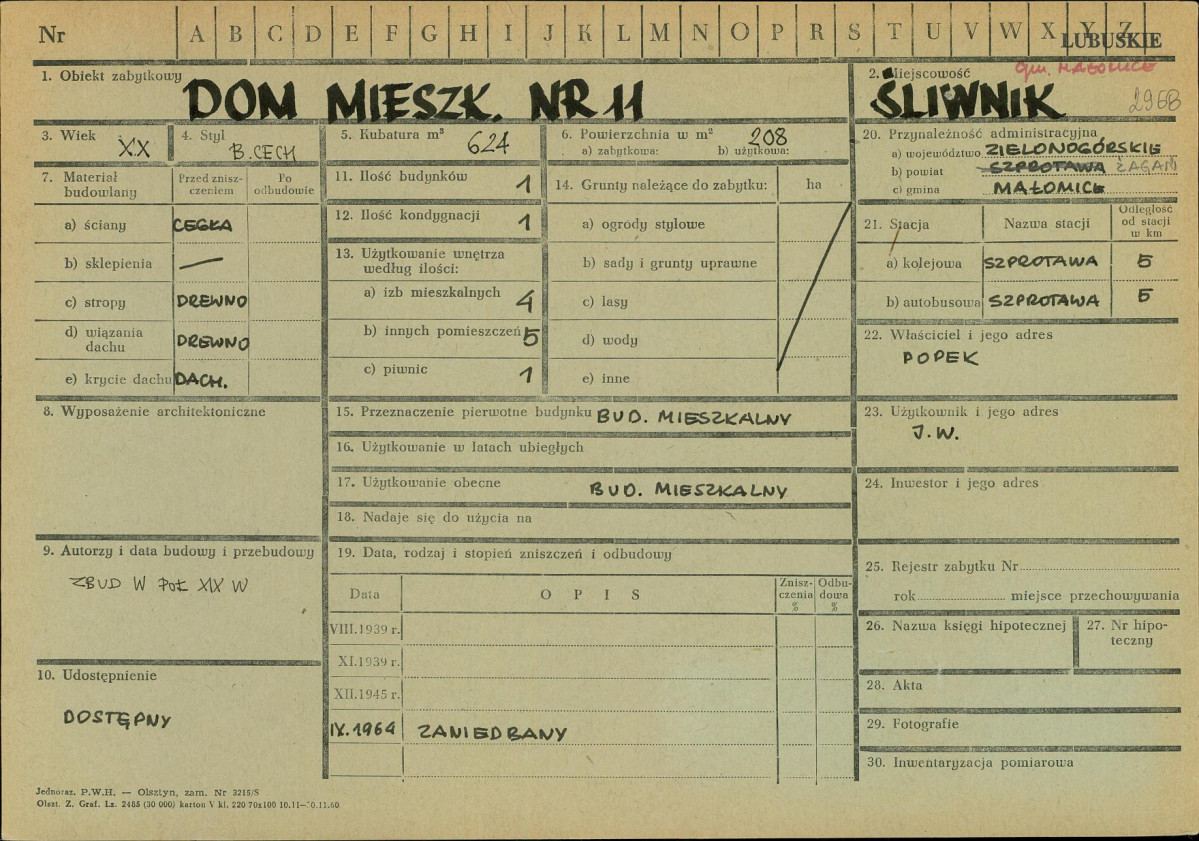 Nr A B C D E F G H I J K L M N O P R S T U V W X Y Z
LUBUSKIE
gm. MAŁOMICE
1. Obiekt zabytkowy
DOM MIESZK. NR 11
2. Miejscowość
ŚLIWNIK
2968
3. Wiek
XX
4. Styl
B. CECH
5. Kubatura m³
624
6. Powierzchnia w m²
a) zabytkowa: b) użytkowa:
208
7. Materiał budowlany
Przed znisz-
czeniem
Po
odbudowie
a) ściany CEGŁA
b) sklepienia —
c) stropy DREWNO
d) wiązania
dachu DREWNO
e) krycie dachu DACH.
11. Ilość budynków 1
12. Ilość kondygnacji 1
13. Użytkowanie wnętrza
według ilości:
a) izb mieszkalnych 4
b) innych pomieszczeń 5
c) piwnic 1
14. Grunty należące do zabytku: ha
a) ogrody stylowe
b) sady i grunty uprawne
c) lasy
d) wody
e) inne
20. Przynależność administracyjna
a) województwo ZIELONOGÓRSKIE
b) powiat SZPROTAWA ŻAGAŃ
c) gmina MAŁOMICE
21. Stacja
Nazwa stacji
Odległość
od stacji
w km
a) kolejowa SZPROTAWA 5
b) autobusowa SZPROTAWA 5
22. Właściciel i jego adres
POPEK
8. Wyposażenie architektoniczne
15. Przeznaczenie pierwotne budynku BUD. MIESZKALNY
16. Użytkowanie w latach ubiegłych
17. Użytkowanie obecne BUD. MIESZKALNY
18. Nadaje się do użycia na
23. Użytkownik i jego adres
J.W.
24. Inwestor i jego adres
9. Autorzy i data budowy i przebudowy
ZBUD W POŁ XIX W
10. Udostępnienie
DOSTĘPNY
19. Data, rodzaj i stopień zniszczeń i odbudowy
Data
O P I S
Znisz-
czenia
%
Odbu-
dowa
%
VIII.1939 r.
XI.1939 r.
XII.1945 r.
IX.1964 ZANIEDBANY
25. Rejestr zabytku Nr
rok miejsce przechowywania
26. Nazwa księgi hipotecznej
27. Nr hipo-
teczny
28. Akta
29. Fotografie
30. Inwentaryzacja pomiarowa
Jednoraz. P.W.H. — Olsztyn, zam. Nr 3215/S
Olszt. Z. Graf. Lz. 2485 (30 000) karton V kl. 220 70x100 10.11—30.11.60